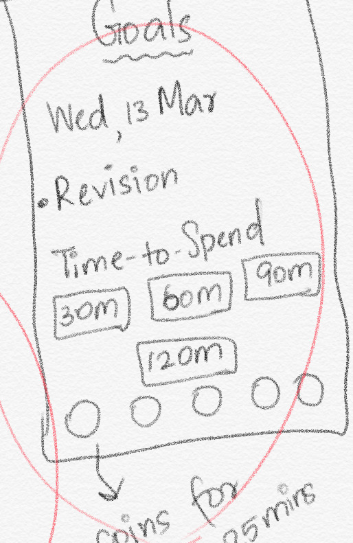 Goals
Wed, 13 Mar
• Revision
Time-to-Spend
30m 60m 90m
120m
coins for
25mins